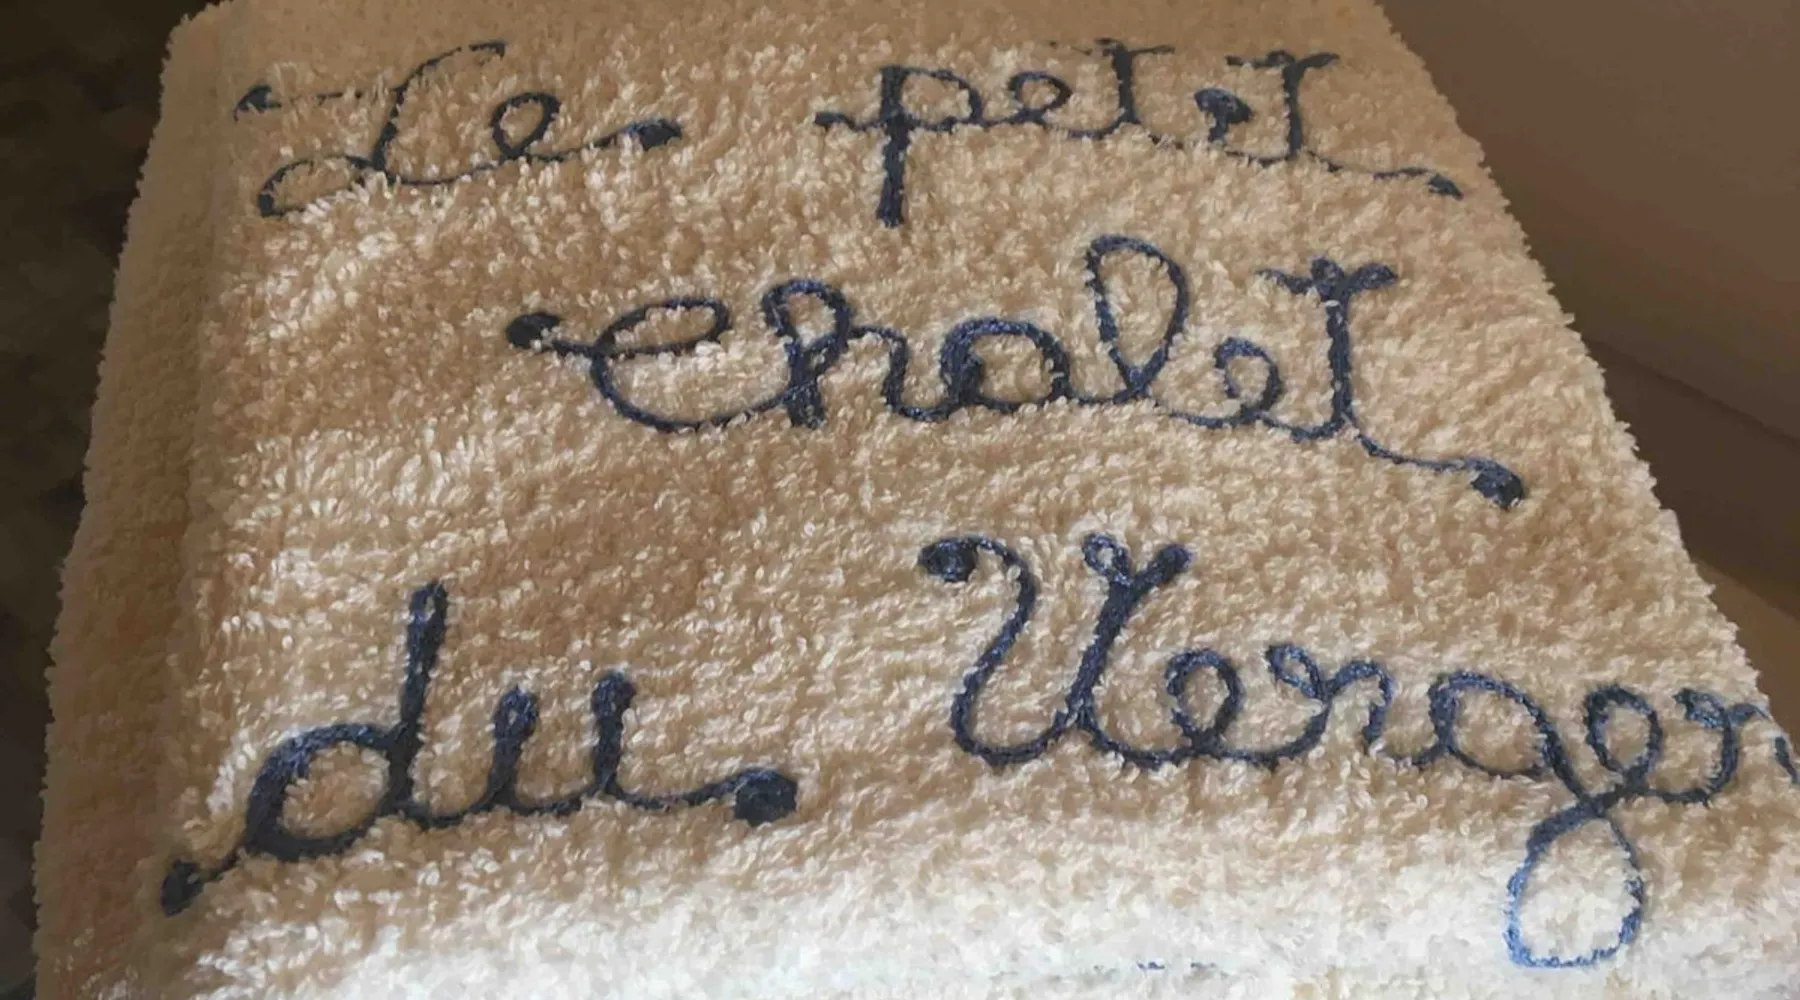 Le petit
chalet
du Verger